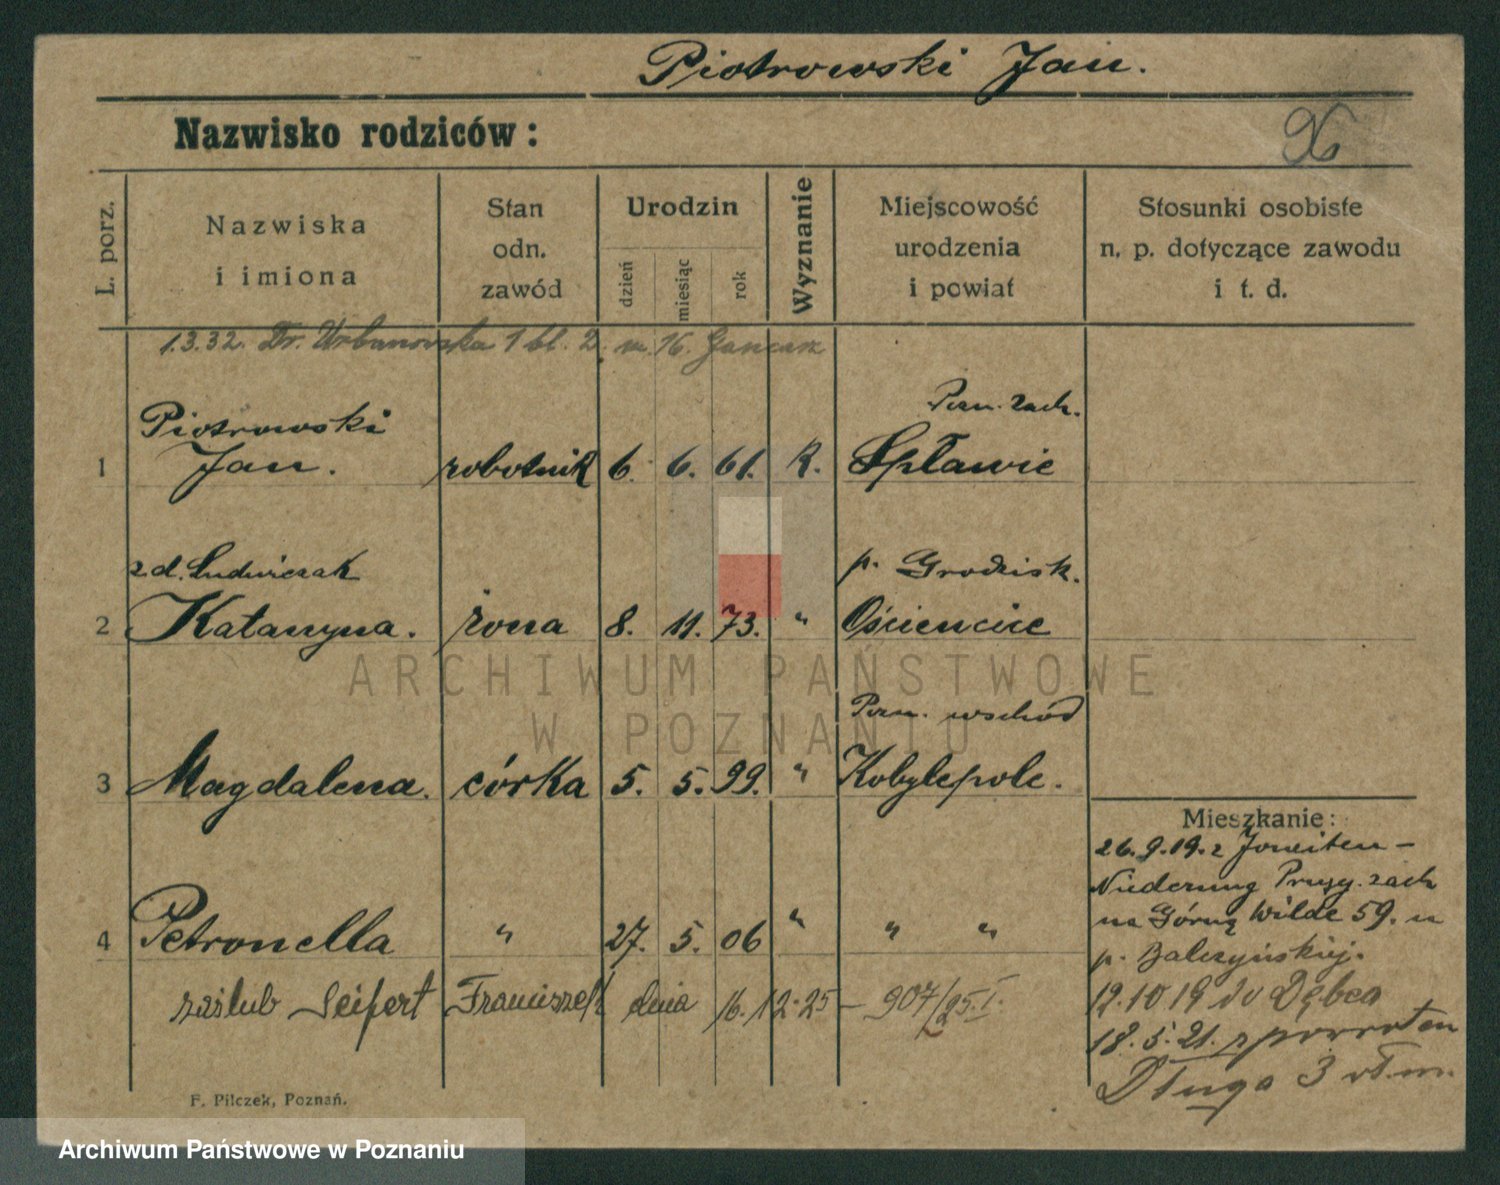 Piotrowski Jan.
Nazwisko rodziców:
L. porz.
Nazwiska
i imiona
Stan
odn.
zawód
Urodzin
dzień
miesiąc
rok
Wyznanie
Miejscowość
urodzenia
i powiat
Stosunki osobiste
n. p. dotyczące zawodu
i t. d.
1.3.32. Dr. Urbanowska 1 bl. 2. m. 16.
Piotrowski Pozn. zach.
1 Jan. robotnik 6. 6. 61. K. Spławie
z d. Ludwiczak p. Grodzisk.
2 Katarzyna. żona 8. 11. 73. " Ościencice
Pozn. wschód
3 Magdalena. córka 5. 5. 99. " Kobylepole.
4 Petronella " 27. 5. 06 " " "
zaślub Seifert Franciszek dnia 16.12.25 – 907/25.I.
Mieszkanie:
26.9.19. z
Niederung Prusy. zach
na Górną Wilde 59. u
p. Balczyńskiej.
12.10 19 do Dębca
18.5.21. z powrotem
Długa 3
F. Pilczek, Poznań.
ARCHIWUM PAŃSTWOWE
W POZNANIU
Archiwum Państwowe w Poznaniu